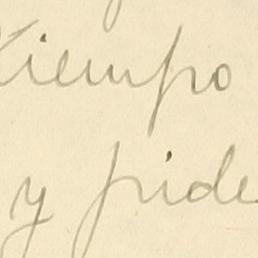 tiempo
y pide